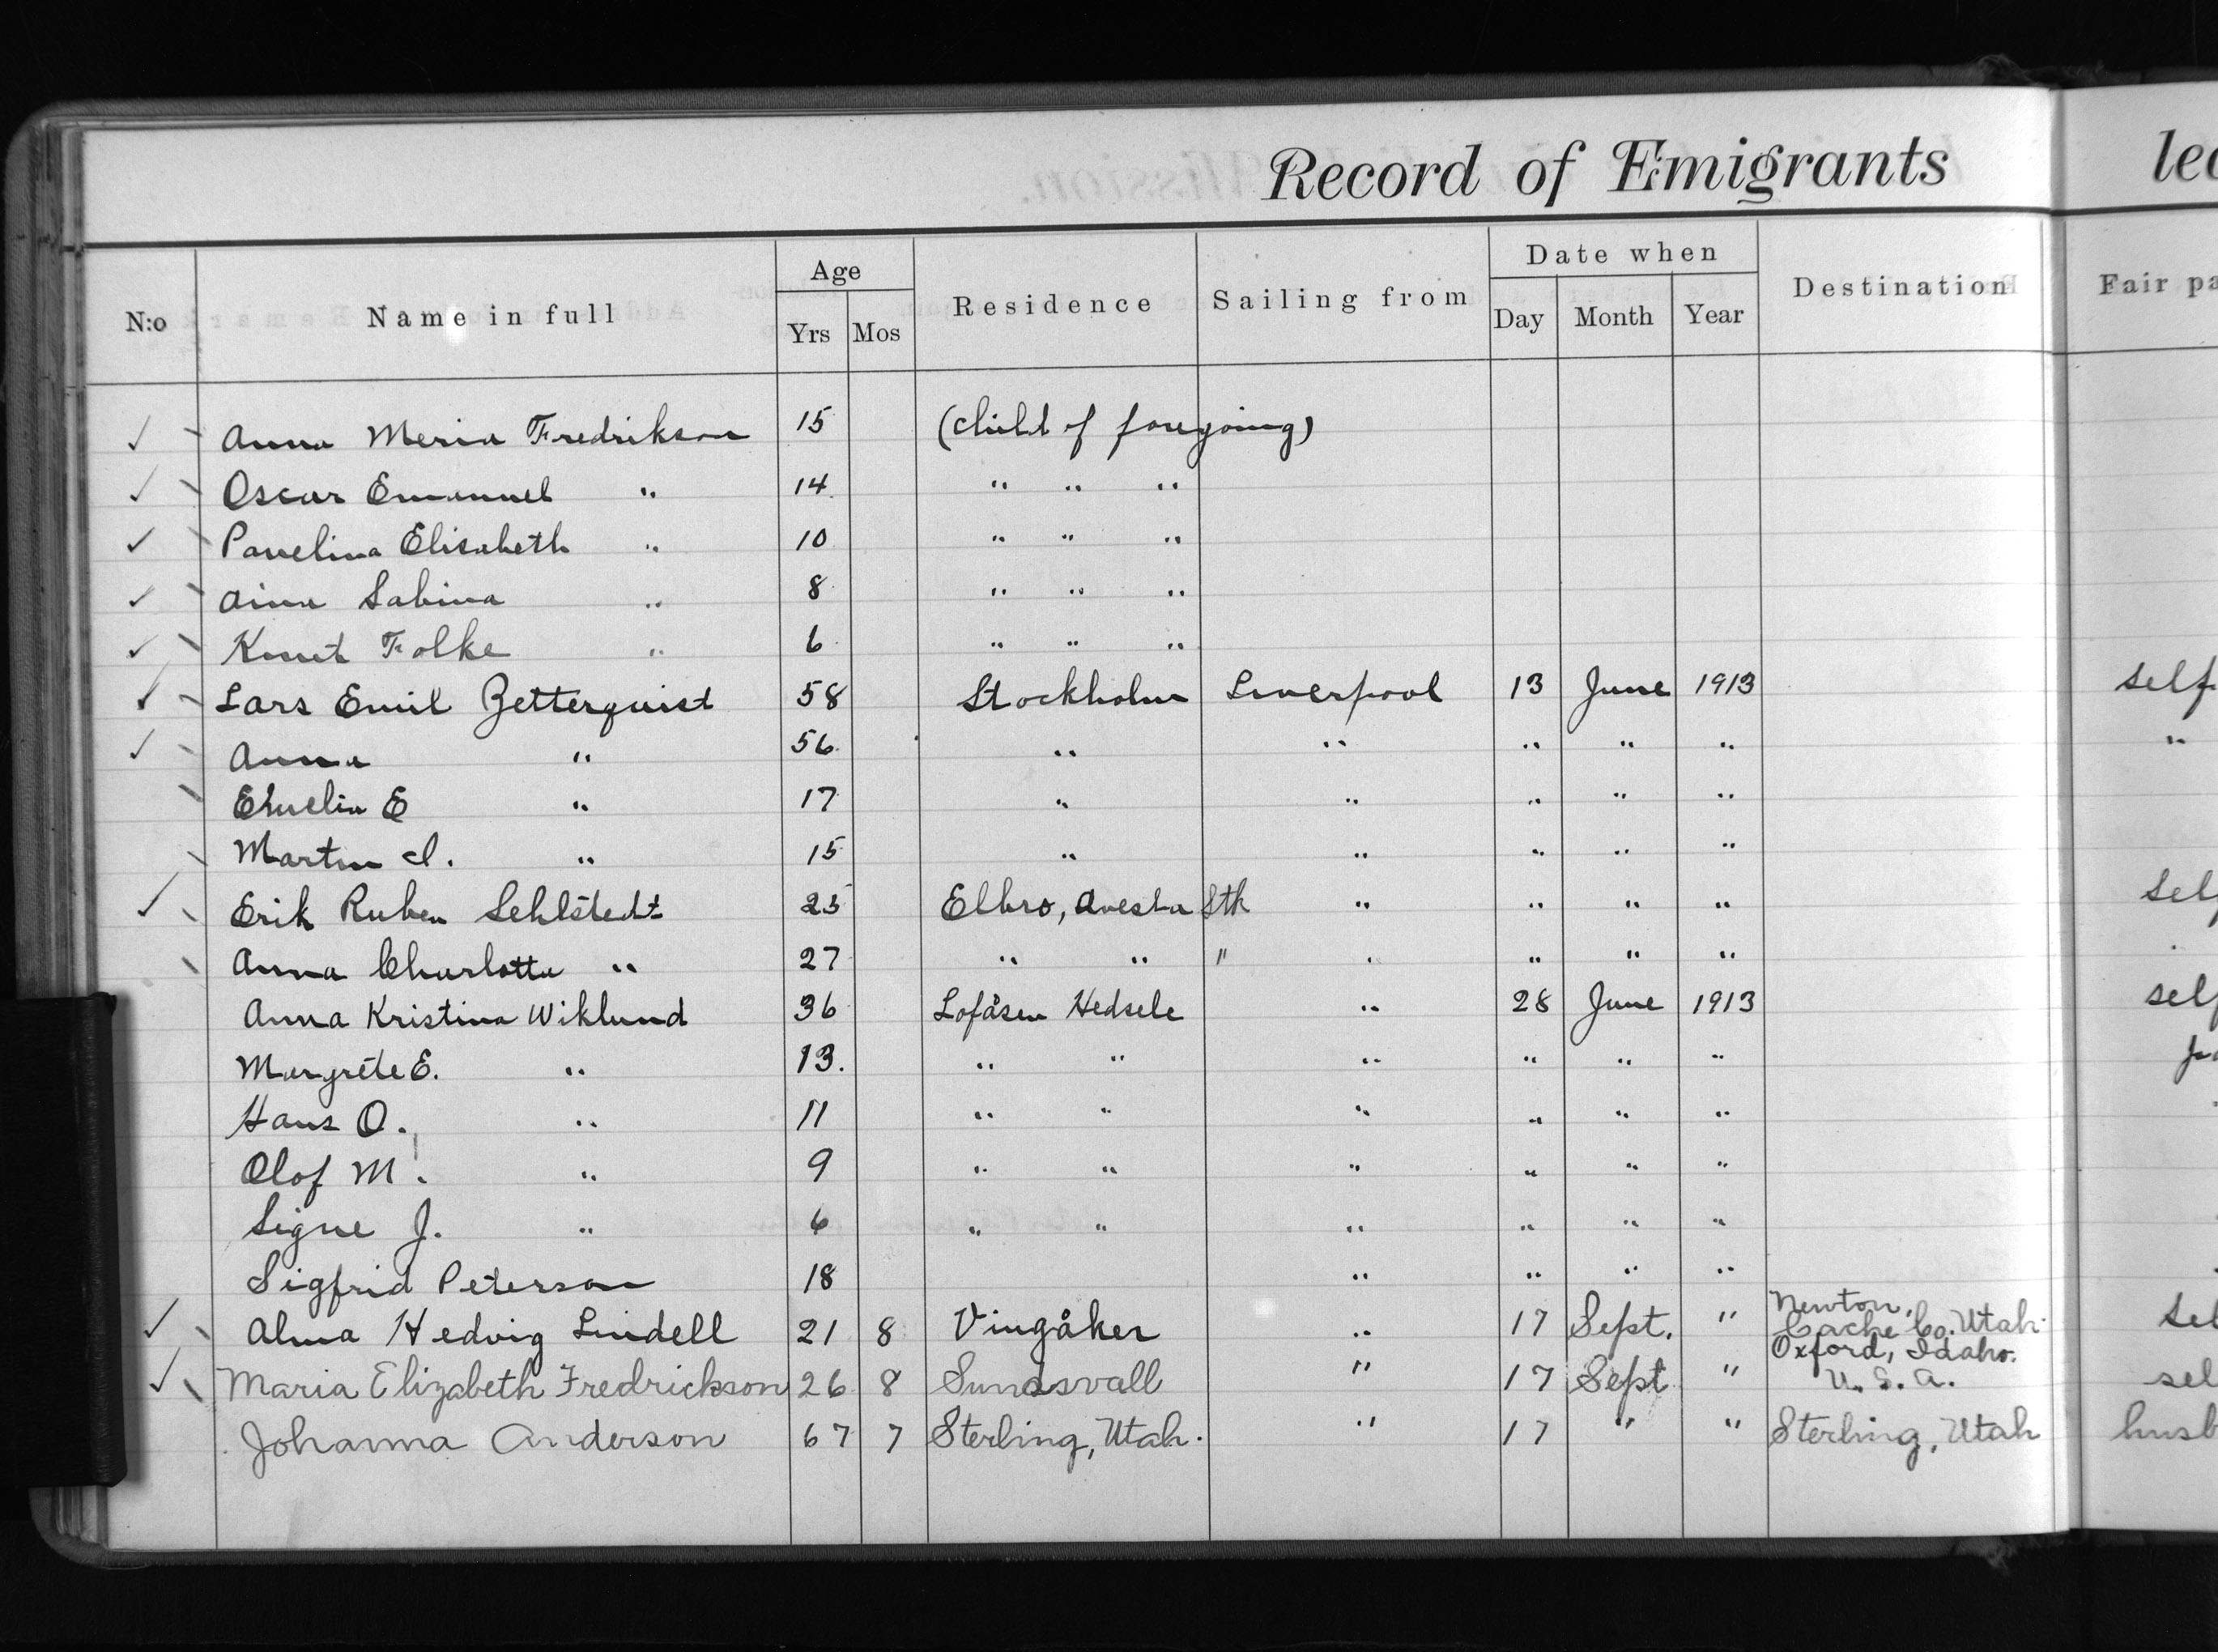 Record of Emigrants
N:o Name in full Age Yrs Mos Residence Sailing from Date when Day Month Year Destination Fair pa
✓ Anna Meria Fredrikson 15 (child of foregoing)
✓ Oscar Emanuel " 14 " " "
✓ Pauelina Elisabeth " 10 " " "
✓ Aina Sabina " 8 " " "
✓ Knut Folke " 6 " " "
✓ Lars Emil Zetterquist 58 Stockholm Liverpool 13 June 1913 self
✓ Anna " 56 " " " " " "
E " 17 " " " " "
Martin " 15 " " " " "
✓ Erik Ruben Sehlstedt 25 Elbro, Avesta Sth " " " " self
Anna Charlotta " 27 " " " " " " "
Anna Kristina Wiklund 36 Lofåsen Hedsele " 28 June 1913 self
Margrete E. " 13. " " " " " "
Hans O. " 11 " " " " " "
Olof M. " 9 " " " " " "
Signe J. " 6 " " " " " "
Sigfrid Peterson 18 " " " "
✓ Alma Hedvig Lindell 21 8 Vingåker " 17 Sept. " Newton, Cache Co. Utah sel
✓ Maria Elizabeth Fredrickson 26 8 Sundsvall " 17 Sept " Oxford, Idaho. U. S. A. sel
Johanna Anderson 67 7 Sterling, Utah. " 17 " " Sterling, Utah husb